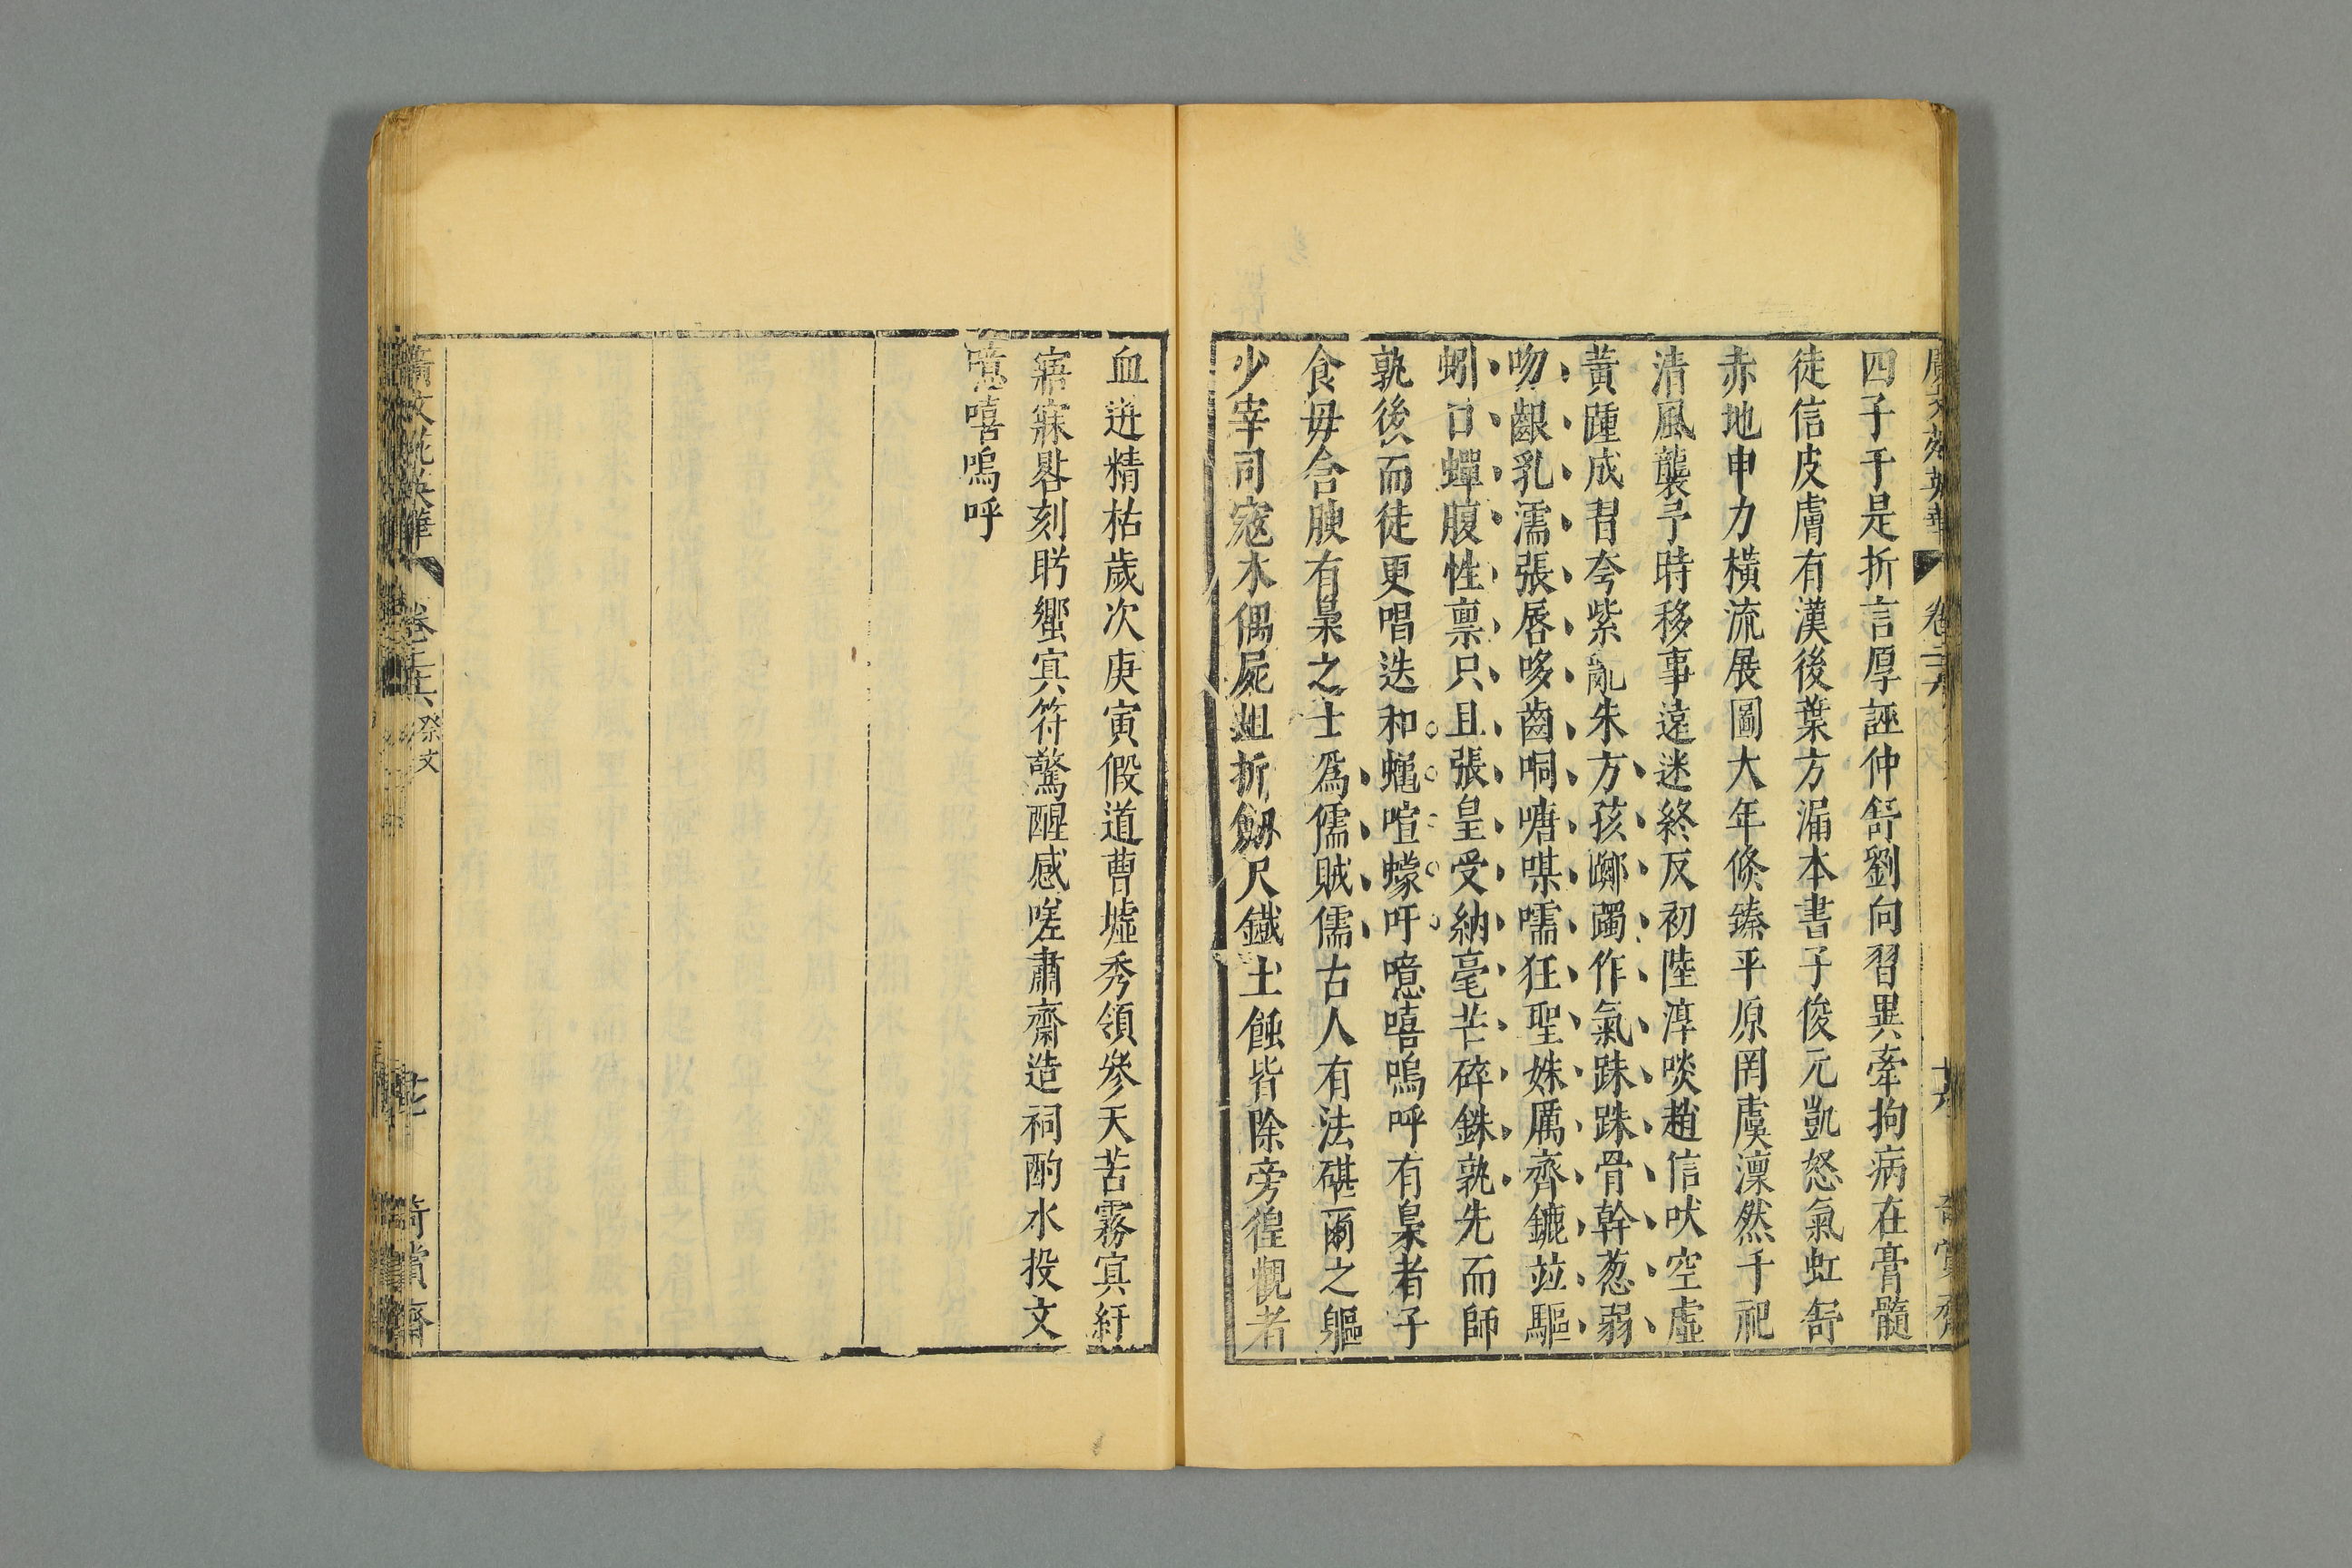 四子于是折言厚誣仲舒劉向習異牽拘病在膏髓
徒信皮膚有漢後葉方漏本書子俊元凱怒氣虹舒
赤地申力橫流展圖大年倏臻平原罔虞凜然千祀
清風襲予時移事遠迷終反初陸淳啖趙信吠空虛
黃踵成習夸紫亂朱方孩躑躅作氣跦跦骨幹葱弱
吻齦乳濡張唇哆齒哃嘡喋嚅狂聖姝厲齊鑣竝驅
蚓口蟬腹性稟只且張皇受納毫芒碎銖孰先而師
孰後而徒更唱迭和蠅喧蠓吁噫嘻嗚呼有梟者子
食毋含腴有梟之士爲儒賊儒古人有法磔爾之軀
少宰司寇木偶屍姐折劒尺鐵土蝕皆除旁徨觀者
血迸精枯歲次庚寅假道曹墟秀領參天苦霧寘紆
寤寐晷刻眝蠁寘符驚醒感嗟肅齋造祠酌水投文
噫嘻嗚呼
廣文苑英華
祭文